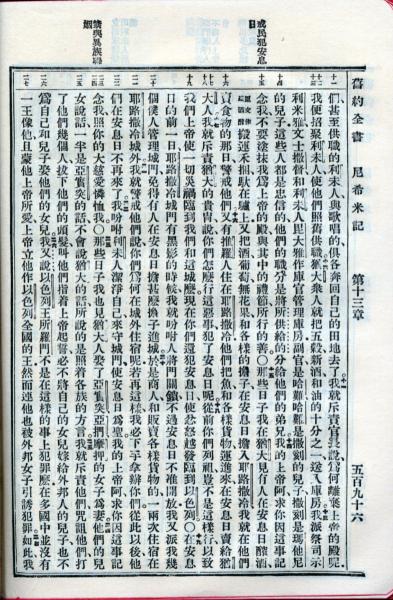 舊約全書 尼希米記 第十三章 五百九十六
們甚至供職的利未人與歌唱的俱各奔回自己的田地去了我就斥責官長說爲何離棄上帝的殿呢
我便招聚利未人使他們照舊供職猶大衆人就把五穀新酒和油的十分之一送入庫房我派祭司示
利米雅文士撒督和利未人毘大雅作庫官管理庫房副官是哈難哈難是撒刻的兒子撒刻是瑪他尼
的兒子這些人都是忠信的他們的職分是將所供給的分給他們的弟兄我的上帝阿求你因這事記
念我不要塗抹我爲上帝的殿與其中的禮節所行的善○那些日子我在猶大見有人在安息日醡酒
戒民犯安息日
搬運禾捆馱在驢上又把酒葡萄無花果和各樣的擔子在安息日擔入耶路撒冷我就在他們
賣食物的那日警戒他們又有推羅人住在耶路撒冷他們把魚和各樣貨物運進來在安息日賣給猶
大人我就斥責猶大的貴冑說你們怎麽行這惡事犯了安息日呢從前你們列祖豈不是這樣行以致
我們上帝使一切災禍臨到我們和這城麽現在你們還犯安息日使忿怒越發臨到以色列○在安息
日的前一日耶路撒冷城門有黑影的時候我就吩咐人將門關鎖不過安息日不准開放我又派我幾
個僕人管理城門免得有人在安息日擔甚麽擔子進城於是商人和販賣各樣貨物的一兩次住宿在
耶路撒冷城外我就警戒他們說你們爲何在城外住宿呢若再這樣我必下手拿辦你們從此以後他
們在安息日不再來了我吩咐利未人潔淨自己來守城門使安息日爲聖我的上帝阿求你因這事記
念我照你的大慈愛憐恤我○那些日子我也見猶大人娶了亞實突亞捫摩押的女子爲妻他們的兒
禁與異族聯姻
女說話一半是亞實突的話不會說猶大的話所說的是照着各族的方言我就斥責他們咒詛他們打
了他們幾個人拔下他們的頭髮叫他們指着上帝起誓必不將自己的女兒嫁給外邦人的兒子也不
爲自己和兒子娶他們的女兒我又說以色列王所羅門不是在這樣的事上犯罪麽在多國中並沒有
一王像他且蒙他上帝所愛上帝立他作以色列全國的王然而連他也被外邦女子引誘犯罪如此我